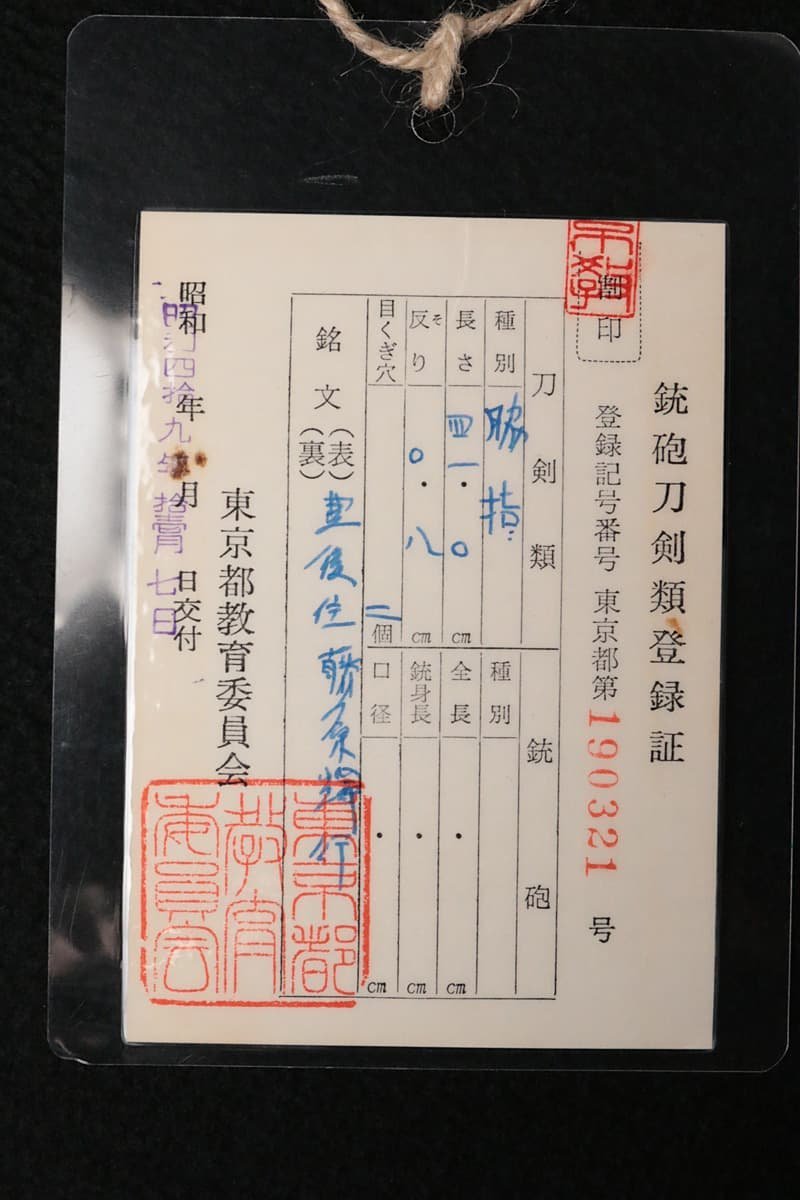 銃砲刀剣類登録証
割印
登録記号番号 東京都第190321号
刀剣類
種別 脇指
長さ 四一.〇cm
反り そ 〇.八cm
目くぎ穴 二個
銘文 (表) 豊後住藤原輝行
(裏)
銃砲
種別
全長 . cm
銃身長 . cm
口径 . cm
東京都教育委員会
昭和 年 月 日交付
昭和四拾九年拾壹月七日
東京都教育委員会